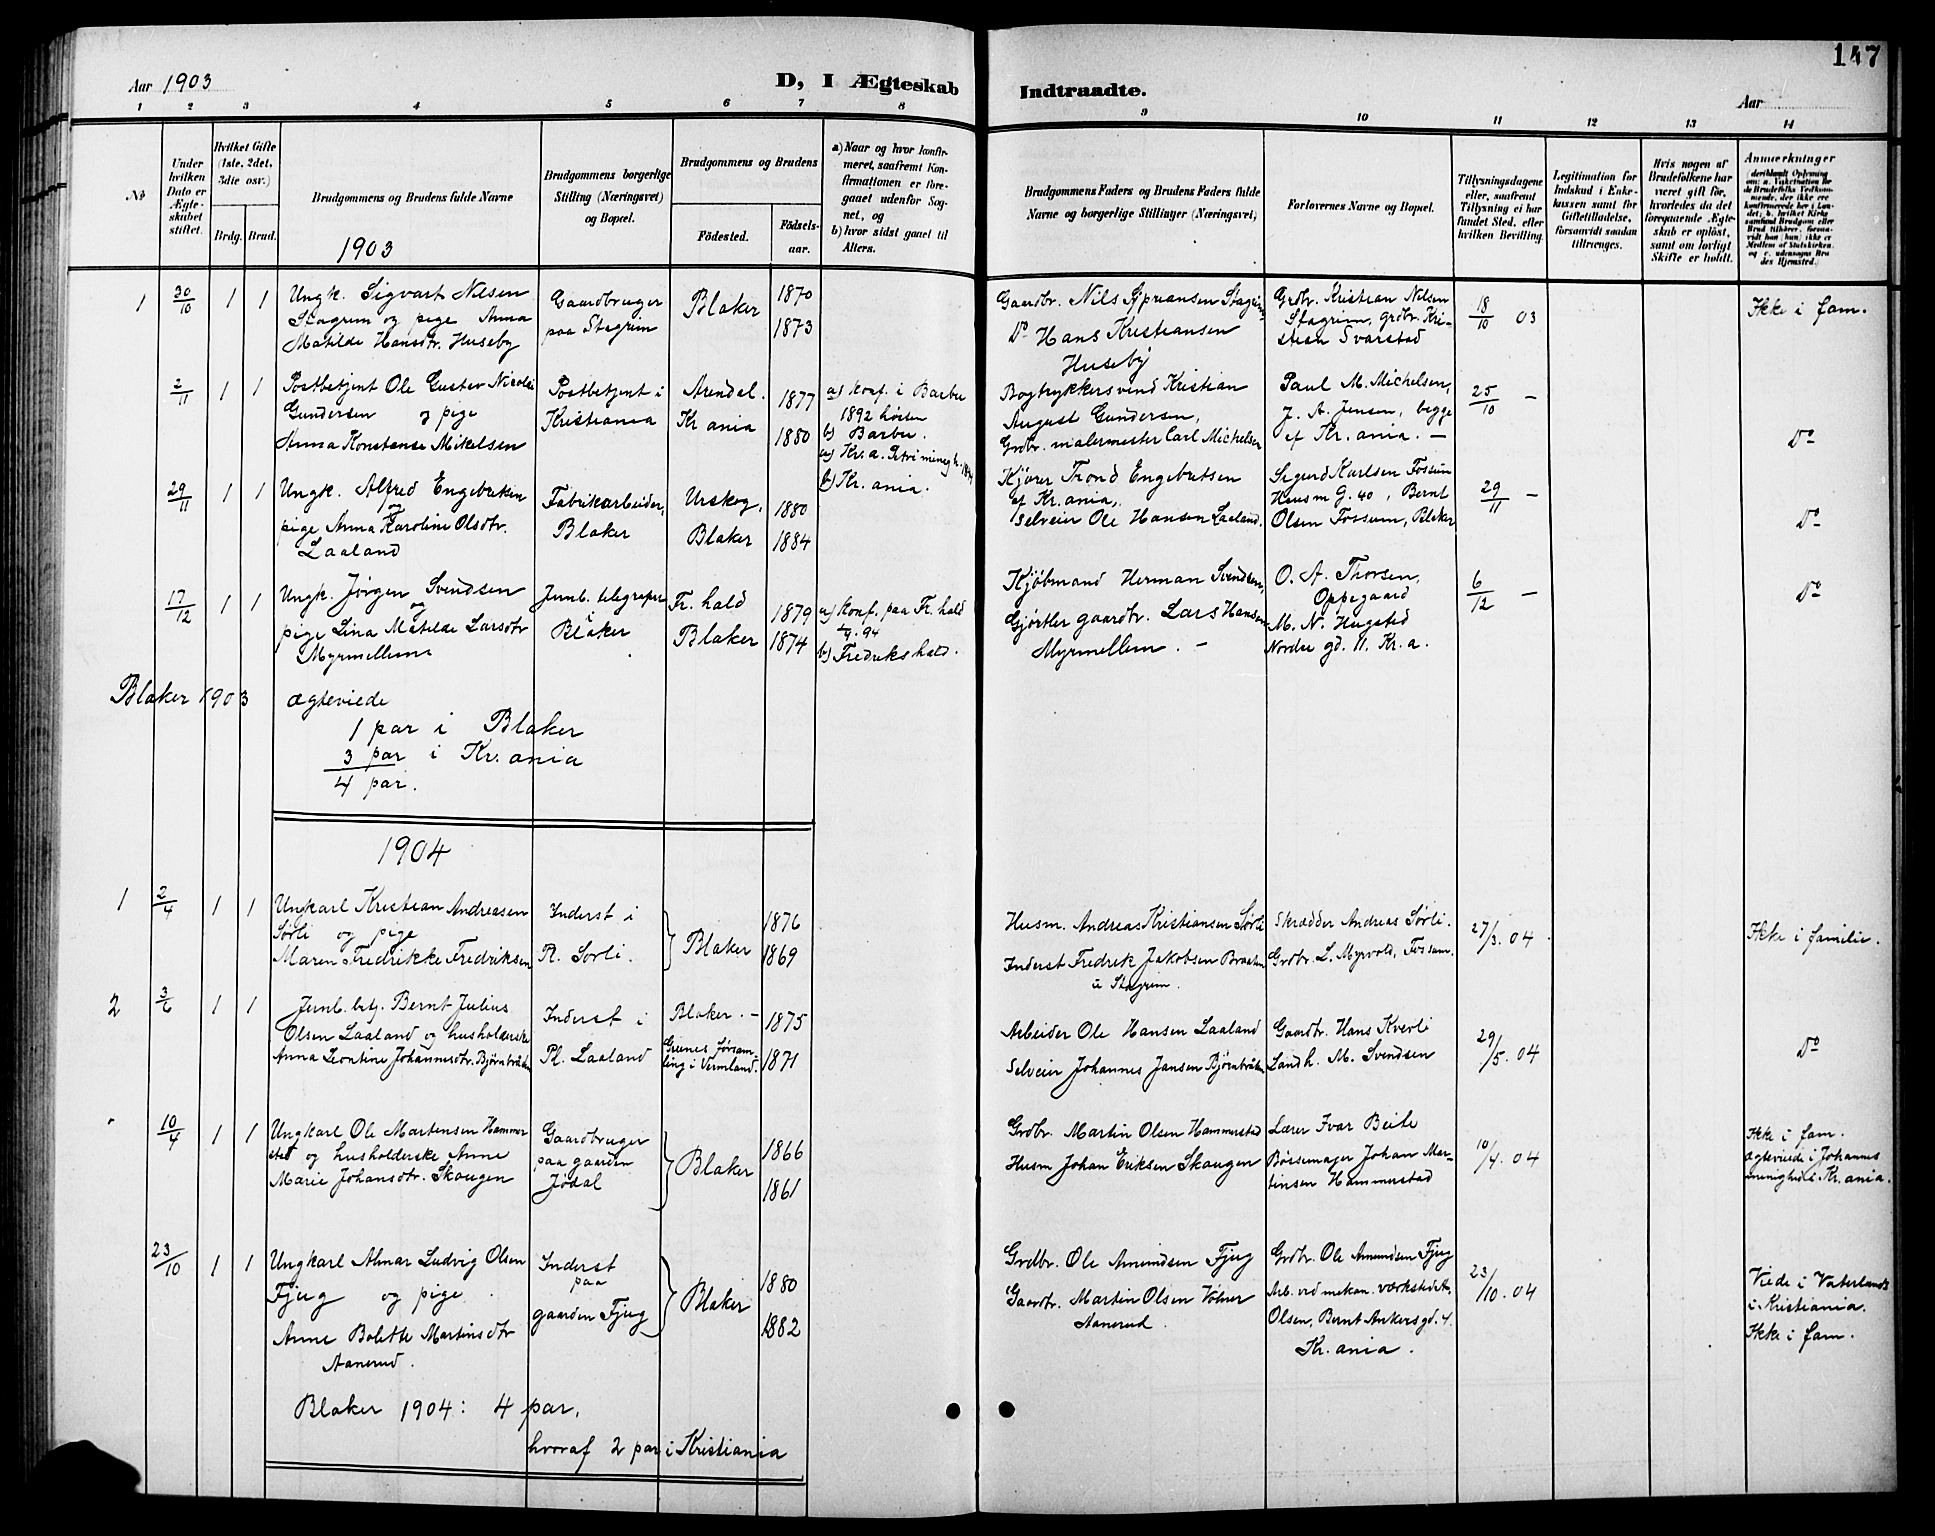 147
Aar 1903
D, I Ægteskab
Indtraadte.
Aar
1 2 3 4 5 6 7 8 9 10 11 12 13 14
No
Under hvilken Dato er Ægteskabet stiftet.
Hvilket Gifte (1ste, 2det, 3die osv.)
Brdg. Brud.
Brudgommens og Brudens fulde Navne
Brudgommens borgerlige Stilling (Næringsvei) og Bopæl.
Brudgommens og Brudens
Fødested.
Fødselsaar.
a) Naar og hvor konfirmeret, saafremt Konfirmationen er foregaaet udenfor Sognet, og
b) hvor sidst gaaet til Alters.
Brudgommens Faders og Brudens Faders fulde Navne og borgerlige Stillinger (Næringsvei)
Forlovernes Navne og Bopæl.
Tillysningsdagene eller, saafremt Tillysning ei har fundet Sted, efter hvilken Bevilling.
Legitimation for Indskud i Enkekassen samt for Giftetilladelse, forsaavidt saadan tiltrænges.
Hvis nogen af Brudefolkene har været gift før, hvorledes da det foregaaende Ægteskab er opløst, samt om lovligt Skifte er holdt.
Anmerkninger
1903
1 30/10 1 1
Ungk. Sigvart Nilsen
Stagrim og pige Anna
Matilde Hansdtr. Huseby
Gaardbruger
paa Stagrim
Blaker
1870
1873
Gaardbr. Nils
Do Hans Kristiansen
Huseby
Grdbr. Kristian Nilsen
Stagrim, grdbr. Kri-
stian Svarstad
18/10 03
Ikke i fam.
2/11 1 1
Postbetjent Ole Gustav Nicolai
Gundersen og pige
Anna Konstanse Mikelsen
Postbetjent i
Kristiania
Arendal.
Kr.ania
1877
1880
a) konf. i Barbu
1892 høsten
b) Barbu.
a) Kr.a. Petri menigh.
b) Kr.ania.
Bogtrykkersvend Kristian
August Gundersen,
Grdbr. malermester Carl Michelsen
Paul M. Michelsen,
J. A. Jensen, begge
af Kr.ania. —
25/10 —
Do
29/11 1 1
Ungk. Alfred Engebretsen
og
pige Anna Karoline Olsdtr.
Laaland
Fabrikarbeider,
Blaker
Urskog,
Blaker
1880
1884
Kjører Trond Engebretsen
af Kr.ania,
Selveier Ole Hansen Laaland.
Sigurd Karlsen Fossum
Hausm G. 40, Bernt
Olsen Fossum, Blaker
29/11 —
Do
17/12 1 1
Ungk. Jørgen Svendsen
og
pige Lina Matilde Larsdtr
Myrmellem
Jernb. telegrafist
i
Blaker
Fr.hald
Blaker
1879
1874
a) Konf. paa Fr.hald
/9. 94
b) Fredrikshald.
Kjøbmand Herman Svendsen,
Gjørtler gaardbr. Lars Hansen
Myrmellem. —
O. A. Thorsen,
Oppegaard
M. N. Hugsted
Nordre gd. 11. Kr.a.
6/12 —
Do
Blaker 1903 ægteviede
1 par i Blaker
3 par i Kr.ania
4 par.
1904
1 2/4 1 1
Ungkarl Kristian Andreasen
Sørli og pige
Maren Fredrikke Fredriksen
Inderst i
Pl. Sørli.
Blaker
1876
1869
Husm. Andreas Kristiansen Sørli
Inderst Fredrik Jakobsen Braaten
u Stagrim.
Skrædder Andreas Sørli.
Grdbr. L. Myrvold, Fossum.
27/3. 04
Ikke i familie.
2 3/6 1 1
Jernb. btj. Bernt Julius
Olsen Laaland og husholderske
Anna Leontine Johannesdtr. Bjørnbråten
Inderst i
Pl. Laaland
Blaker. —
Grunes førsam-
ling i Vermland.
1875
1871
Arbeider Ole Hansen Laaland
Selveier Johannes Jansen Bjørnbråten
Gaardbr. Hans Kverli
Landh. M. Svendsen
29/5. 04
Do
10/4 1 1
Ungkarl Ole Martensen Hammer
stad og husholderske Anne
Marie Johansdtr. Skaugen
Gaardbruger
paa gaarden
Jødal
Blaker
1866
1861
Grdbr. Martin Olsen Hammerstad
Husm Johan Eriksen Skaugen
Lærer Ivar Beite
Bøssemager Johan Mar-
tinsen Hammerstad
10/4. 04
Ikke i fam.
ægteviede i Johannes
menighed i Kr.ania.
23/10 1 1
Ungkarl Almar Ludvig Olsen
Fjug og pige
Anne Bolette Martinsdtr
Aanerud.
Inderst
paa
gaarden Fjug
Blaker
1880
1882
Grdbr. Ole Amundsen Fjug
Gaardbr. Martin Olsen Volner
Aanerud.
Grdbr. Ole Amundsen Fjug
Arb. ved mekan. værksted A.
Olsen, Bernt Ankersgd. 4.
Kr.ania.
23/10. 04
Viede i Vaterlands
i Kristiania.
Ikke i fam.
Blaker 1904: 4 par,
hvoraf 2 par i Kristiania